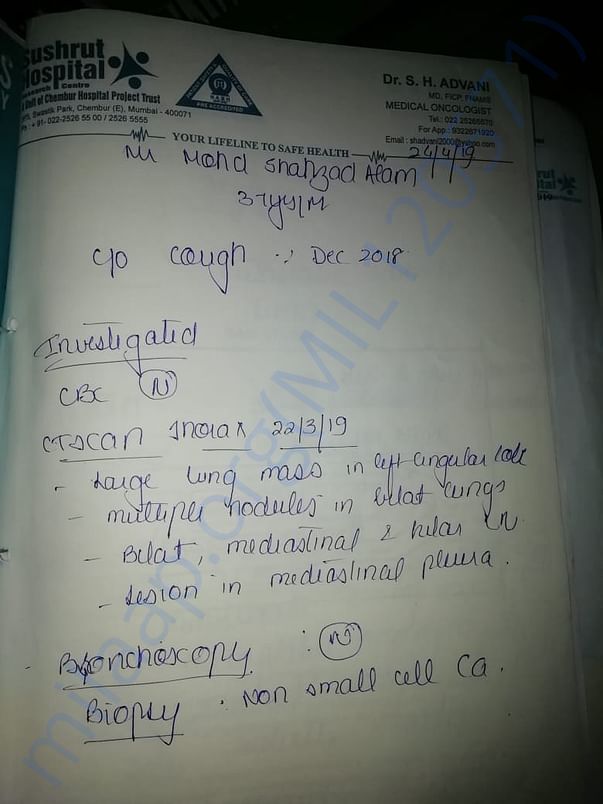 Sushrut
Hospital
Research Centre
A Unit of Chembur Hospital Project Trust
Swastik Park, Chembur (E), Mumbai - 400071
Ph : + 91-022-2526 55 00 / 2526 5555
PRE ACCREDITED
Dr. S. H. ADVANI
MD, FICP, FNAMS
MEDICAL ONCOLOGIST
Tel.: 022 25265570
For App : 9322871920
Email : shadvani2000@yahoo.com
YOUR LIFELINE TO SAFE HEALTH
24/4/19
Mr Mohd Shahzad Alam
37yrs/M
c/o cough ∵ Dec 2018
Investigated
CBC (N)
CT SCAN Thorax 22/3/19
- Large lung mass in left lingular lobe
- multiple nodules in bilat lungs
- Bilat, mediastinal & hilar LN.
- Lesion in mediastinal pleura.
- Bronchoscopy : (N)
Biopsy : Non small cell Ca.
milaap.org(MIL120971)